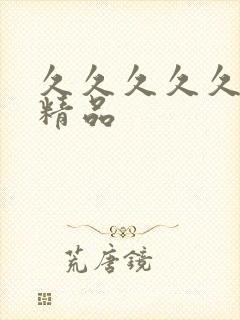 久久久久久
精品
荒唐镜